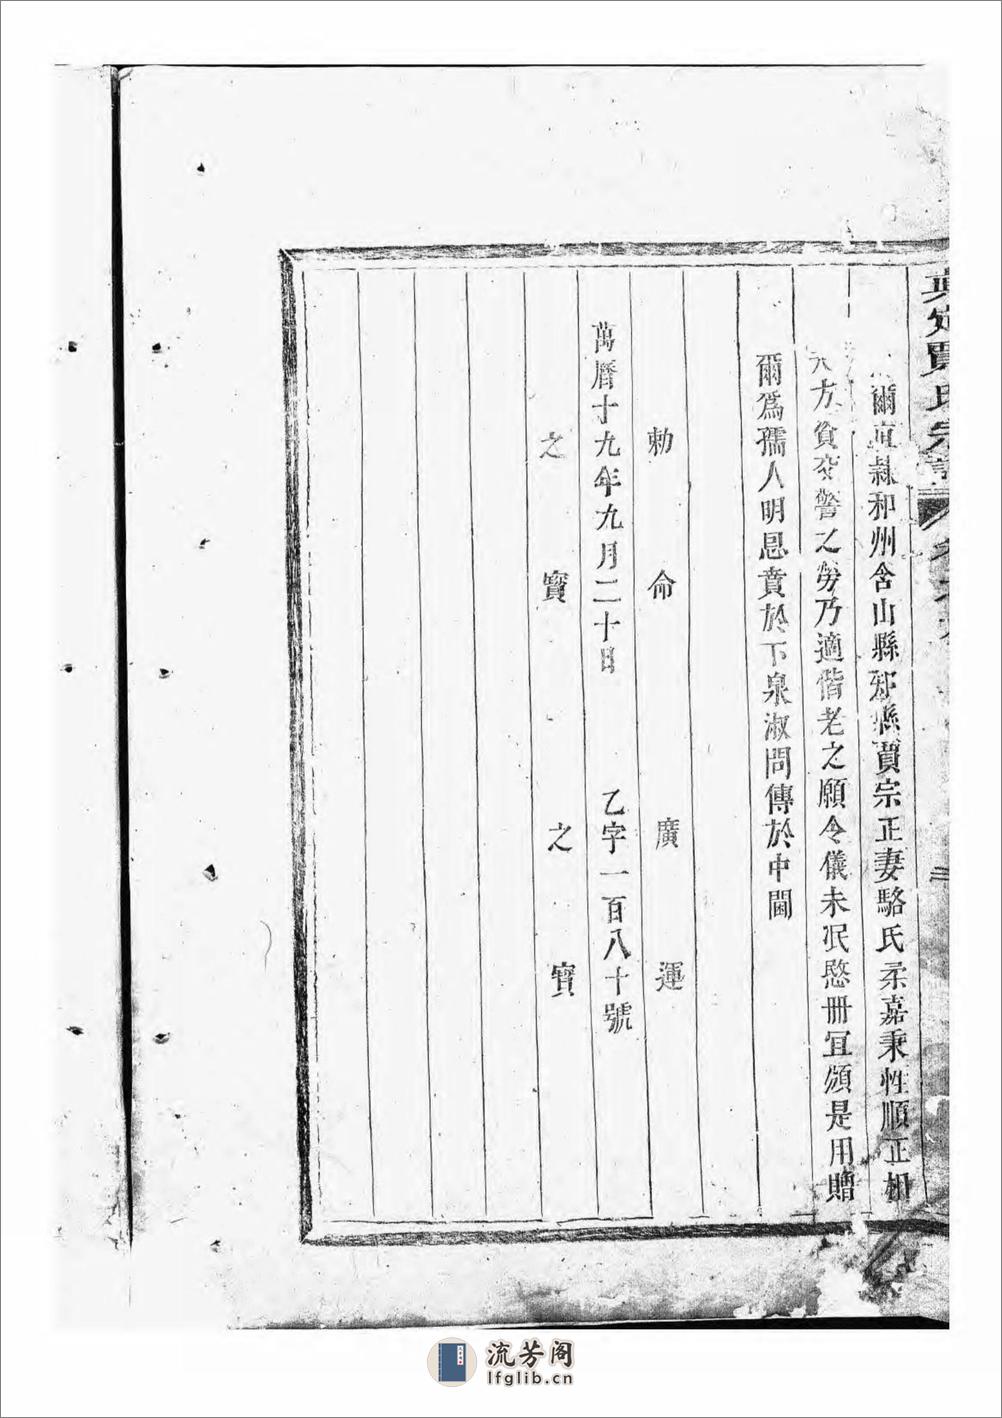 真定賈氏宗譜
爾直隸和州含山縣知縣賈宗正妻駱氏柔嘉秉性順正相
夫方貧交警之勞乃適偕老之願令儀未泯愍冊宜頒是用贈
爾爲孺人明恩賁於下泉淑問傳於中閫
勅命廣運
萬曆十九年九月二十日 乙字一百八十號
之寶之寶
流芳阁
lfglib.cn